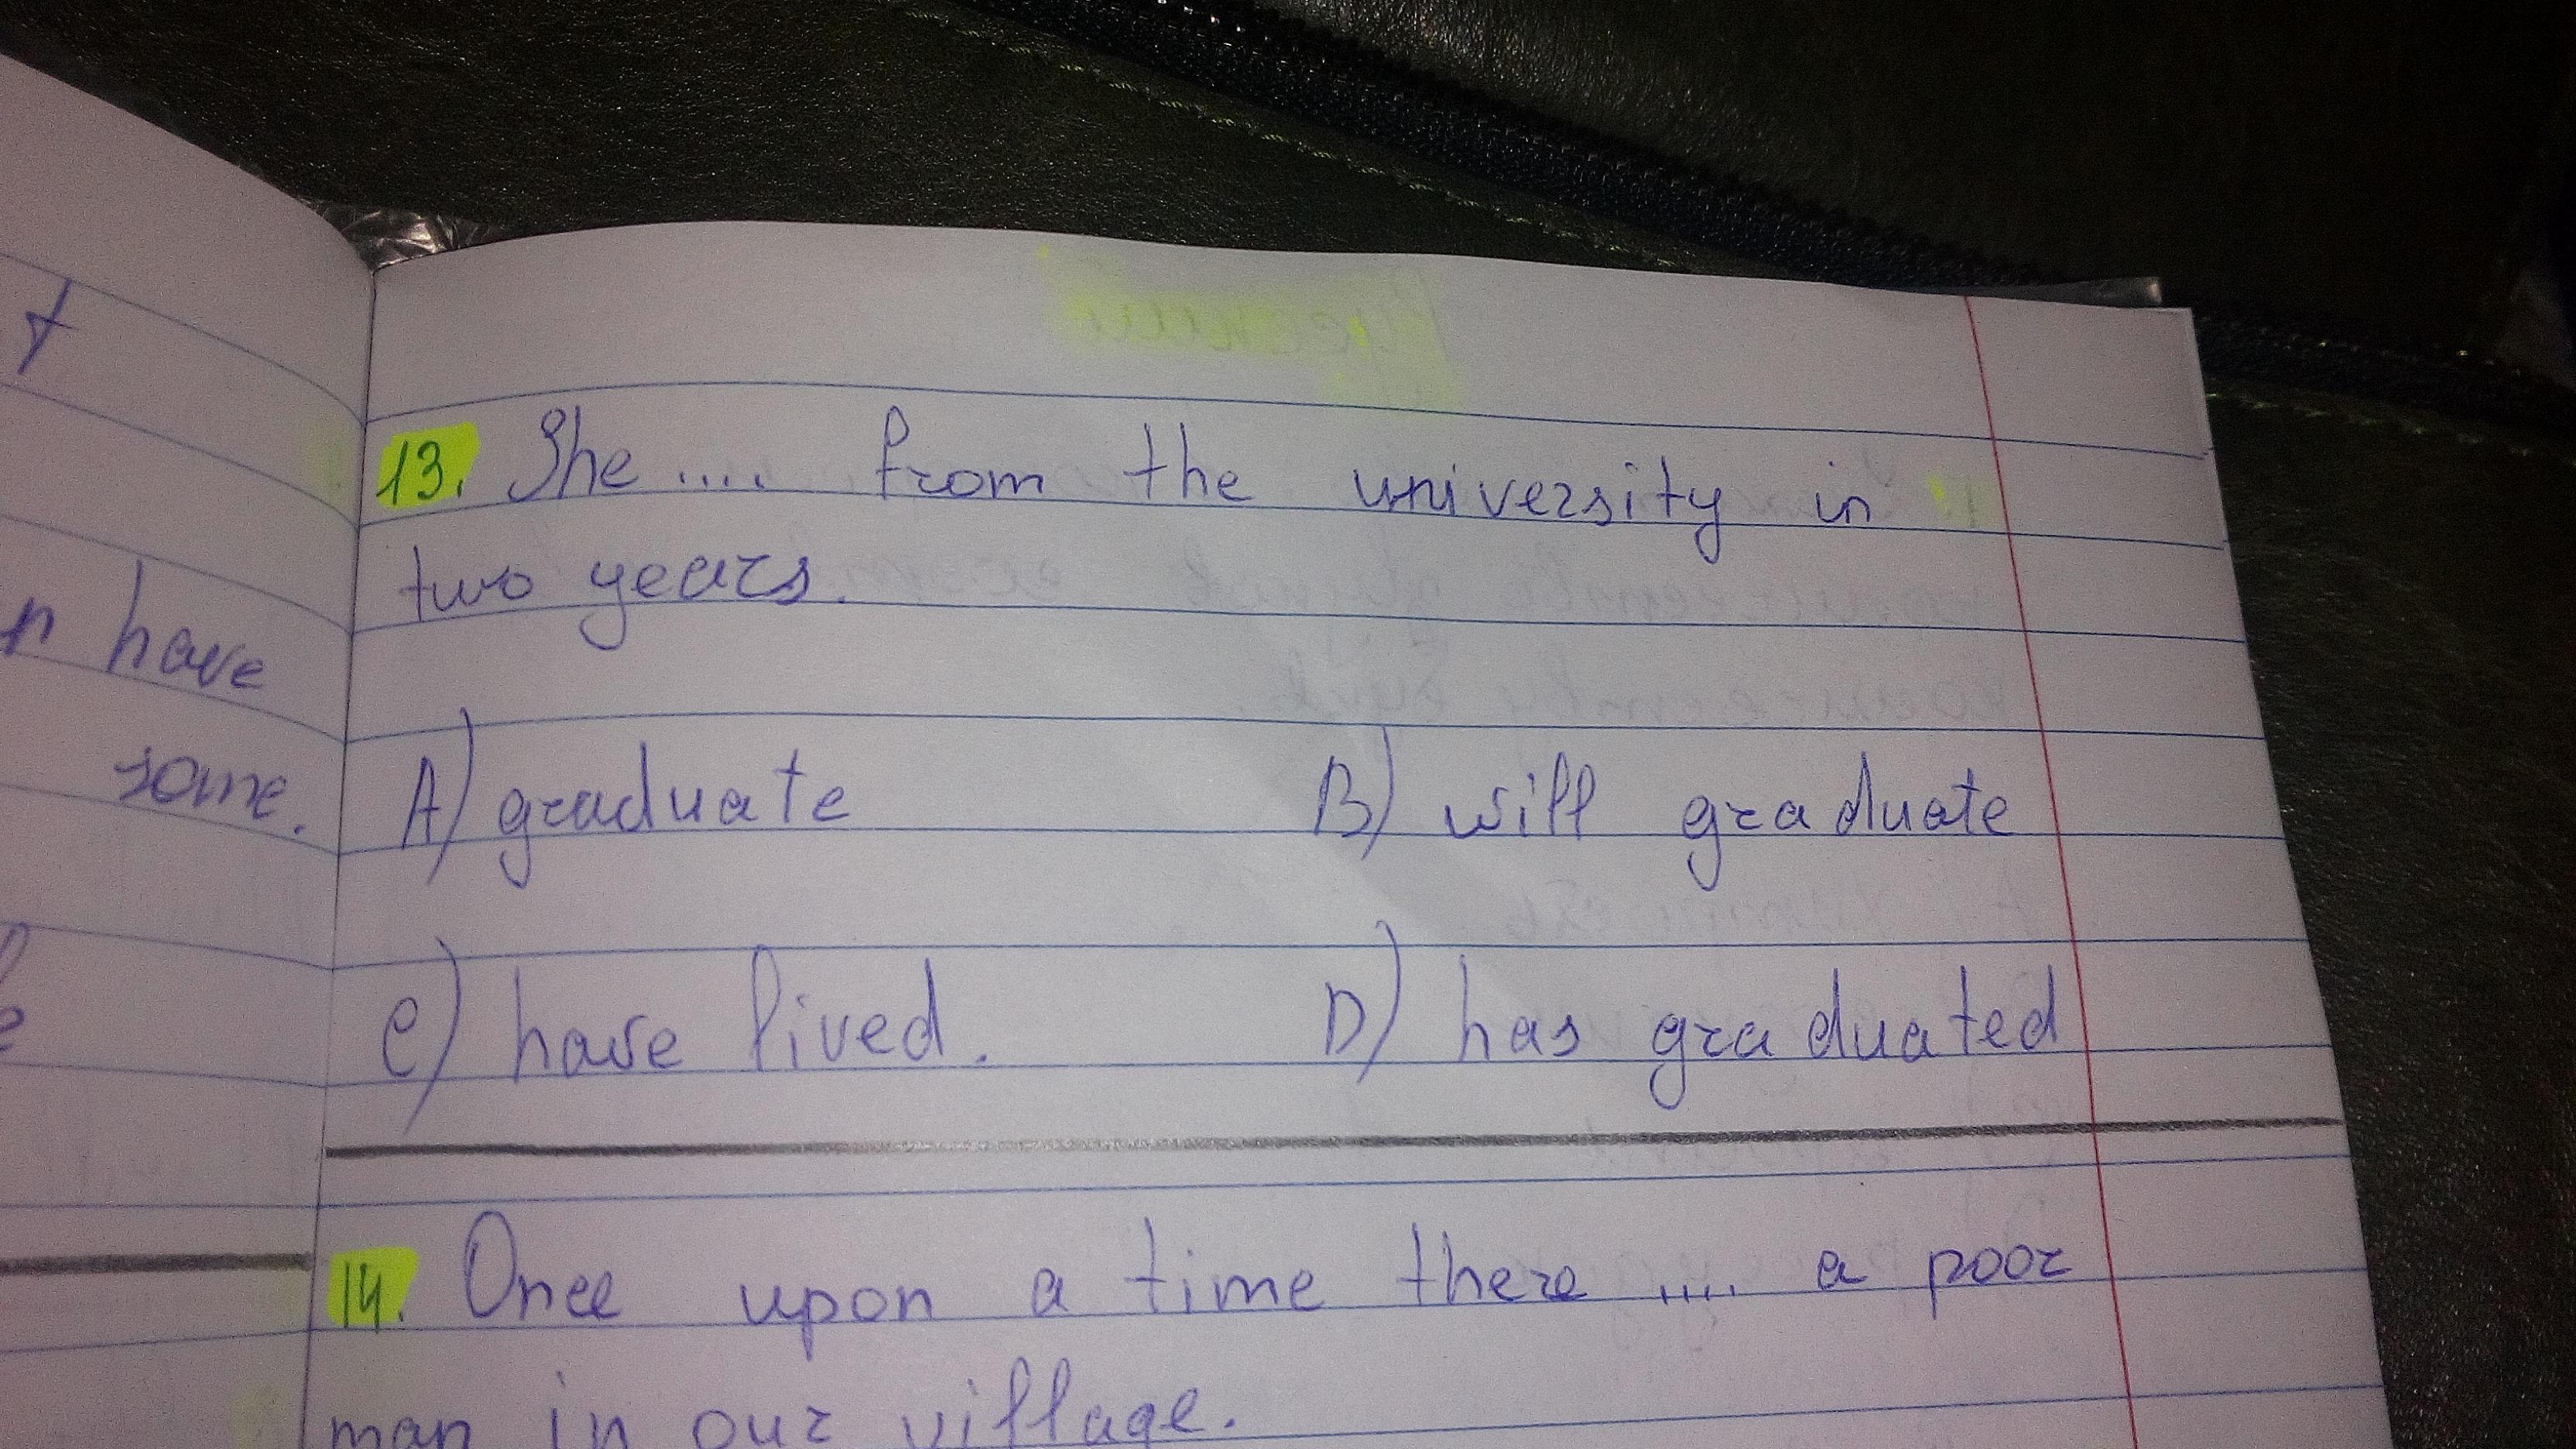 n have
some.
13. She .... from the university in
two years.
A) graduate B) will graduate
C) have lived. D) has graduated
14. Once upon a time there .... a poor
man in our village.